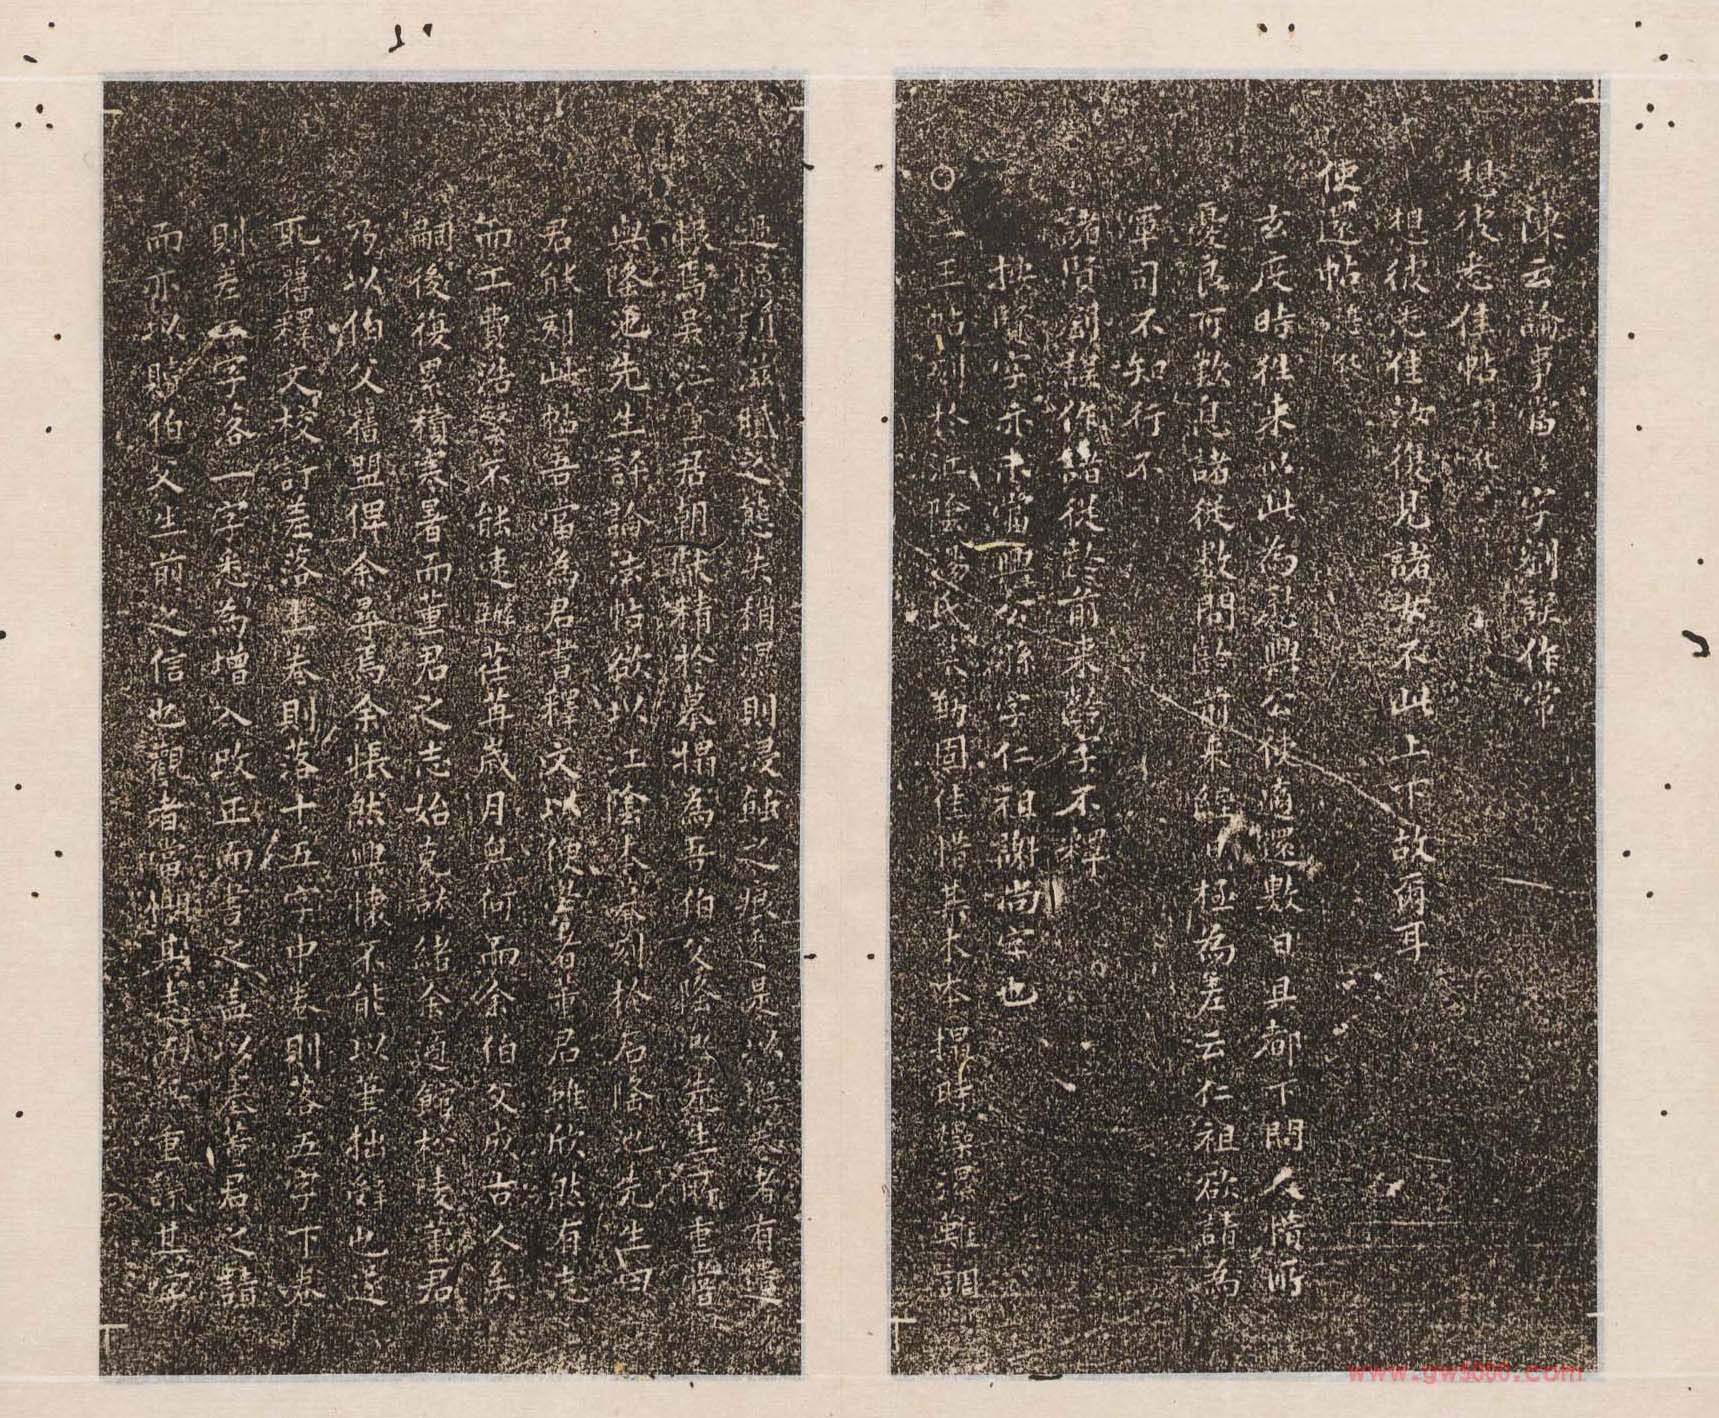 陳云論事當 字劉誤作常
想彼悉佳帖
想彼悉佳汝復見諸女不此上下故爾耳
便還帖
玄度時往來以此為慰興公使適還數日具都下問人情所
憂良可歎息諸從數問 前來 極為差云仁祖欲請為
軍司不知行不
諸賢劉誤作諸從 前來 字不釋
按賢字亦未當興公孫字仁祖謝尚字也
〇二王帖刻於江陰湯氏 勒固佳惜其木本搨時燥濕難調
過燥則 之態失稍濕則浸蝕之痕 是以 者有遺
恨焉吳江董君朝獻精於摹搨為吾伯父隆池先生所重嘗
與隆池先生評論法帖欲以江陰本 刻於石隆池先生曰
君能刻此帖吾當為君書釋文以便 者董君雖欣然有志
而工費浩繁不能速辦荏苒歲月無何而余伯父成古人矣
嗣後復累積寒暑而董君之志始克就緒余適館松陵董君
乃以伯父舊盟俾余尋焉余悵然興懷不能以筆拙辭也遂
取舊釋文校訂差落上卷則落十五字中卷則落五字下卷
則差二字落一字悉為增入改正而書之蓋以塞董君之請
而亦以 伯父生前之信也觀者當 其志 重 其字
www.gw5000.com